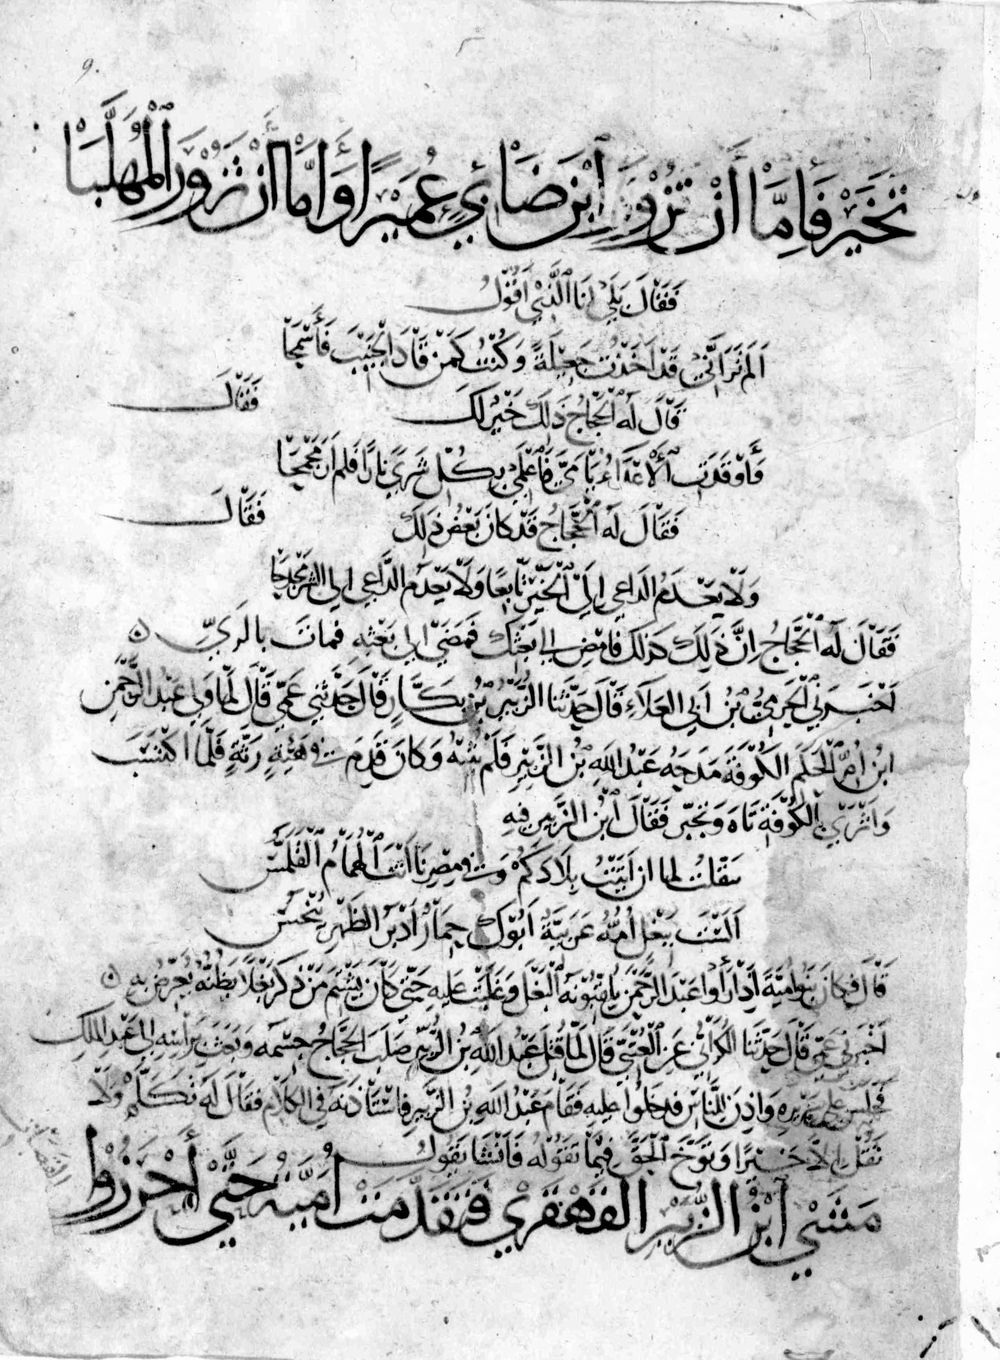 تَخَيَّرْ فَإِمَّا أَنْ تَزُوْرَ ابْنَ ضَابِيءٍ عُمَيْرًا وَإِمَّا أَنْ تَزُوْرَ الْمُهَلَّبَا
فَقَالَ بَلَى أَنَا الَّذِي أَقُوْلُ
أَلَمْ تَرَ أَنِّي قَدْ أَخَذْتُ جَعِيْلَةً وَكُنْتُ كَمَنْ قَادَ الْجَنِيْبَ فَأَسْمَحَا
قَالَ لَهُ الْحَجَّاجُ ذَلِكَ خَيْرٌ لَكَ فَقَالَ
وَأَوْقَدَتِ الْأَعْدَاءُ يَا مَيَّ فَاعْلَمِي بِكُلِّ شَرًى نَارًا فَلَمْ أَرَ مَجْمَحَا
فَقَالَ لَهُ الْحَجَّاجُ قَدْ كَانَ بَعْضُ ذَلِكَ فَقَالَ
وَلَا يَعْدَمُ الدَّاعِي إِلَى الْخَيْرِ تَابِعًا وَلَا يَعْدَمُ الدَّاعِي إِلَى الشَّرِّ مِجْدَحَا
فَقَالَ لَهُ الْحَجَّاجُ إِنَّ ذَلِكَ كَذَلِكَ فَامْضِ إِلَى بَعْثِكَ فَمَضَى إِلَى بَعْثِهِ فَمَاتَ بِالرَّيِّ
أَخْبَرَنِي الْحَرَمِيُّ بْنُ أَبِي الْعَلَاءِ قَالَ حَدَّثَنَا الزُّبَيْرُ بْنُ بَكَّارٍ قَالَ حَدَّثَنِي عَمِّي قَالَ لَمَّا وَلِيَ عَبْدُ الرَّحْمَنِ
ابْنُ أُمِّ الْحَكَمِ الْكُوْفَةَ مَدَحَهُ عَبْدُ اللهِ بْنُ الزَّبِيْرِ فَلَمْ يُثِبْهُ وَكَانَ قَدِمَ فِي هَيْئَةٍ رَثَّةٍ فَلَمَّا اكْتَسَبَ
وَأَثْرَى بِالْكُوْفَةِ تَاهَ وَتَجَبَّرَ فَقَالَ ابْنُ الزَّبِيْرِ فِيهِ
تَبَقَّلْتَ لَمَّا أَنْ أَتَيْتَ بِلَادَكُمْ وَفِي مِصْرِنَا أَنْتَ الْهُمَامُ الْقَلَمَّسُ
أَلَسْتَ بِبَغْلٍ أُمُّهُ عَرَبِيَّةٌ أَبُوْكَ حِمَارٌ أَدْبَرُ الظَّهْرِ يُنْخَسُ
قَالَ فَكَانَ بَنُو أُمَيَّةَ إِذَا رَأَوْا عَبْدَ الرَّحْمَنِ يُلَقِّبُوْنَهُ الْبَغْلَ وَغَلَبَتْ عَلَيْهِ حَتَّى كَانَ يَشْتِمُ مَنْ ذَكَرَ بَغْلًا يَظُنُّهُ يُعَرِّضُ بِهِ
أَخْبَرَنِي عَمِّي قَالَ حَدَّثَنَا الْكُرَانِيُّ عَنِ الْعُمَرِيِّ قَالَ لَمَّا قُتِلَ عَبْدُ اللهِ بْنُ الزُّبَيْرِ صَلَبَ الْحَجَّاجُ جِسْمَهُ وَبَعَثَ بِرَأْسِهِ إِلَى عَبْدِ الْمَلِكِ
فَجَلَسَ عَلَى سَرِيْرِهِ وَأَذِنَ لِلنَّاسِ فَدَخَلُوا عَلَيْهِ فَقَامَ عَبْدُ اللهِ بْنُ الزَّبِيْرِ فَاسْتَأْذَنَهُ فِي الْكَلَامِ فَقَالَ لَهُ تَكَلَّمْ وَلَا
تَقُلْ إِلَّا خَيْرًا وَتَوَخَّ الْحَقَّ فِيْمَا تَقُوْلُهُ فَأَنْشَأَ يَقُوْلُ
مَشَى ابْنُ الزُّبَيْرِ الْقَهْقَرَى فَتَقَدَّمَتْ أُمَيَّةُ حَتَّى أَحْرَزُوا
القصبات